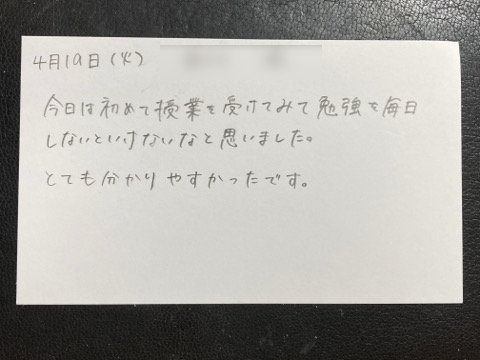 4月19日(火)
今日は初めて授業を受けてみて勉強を毎日
しないといけないなと思いました。
とても分かりやすかったです。